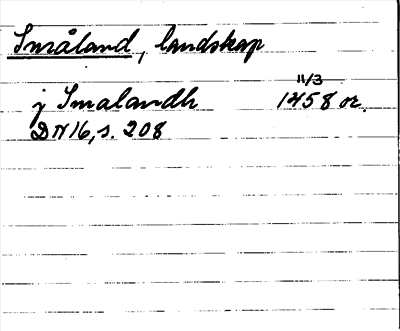 Småland, landskap
11/3
j Smalandh 1458 or.
DN 16, s. 208